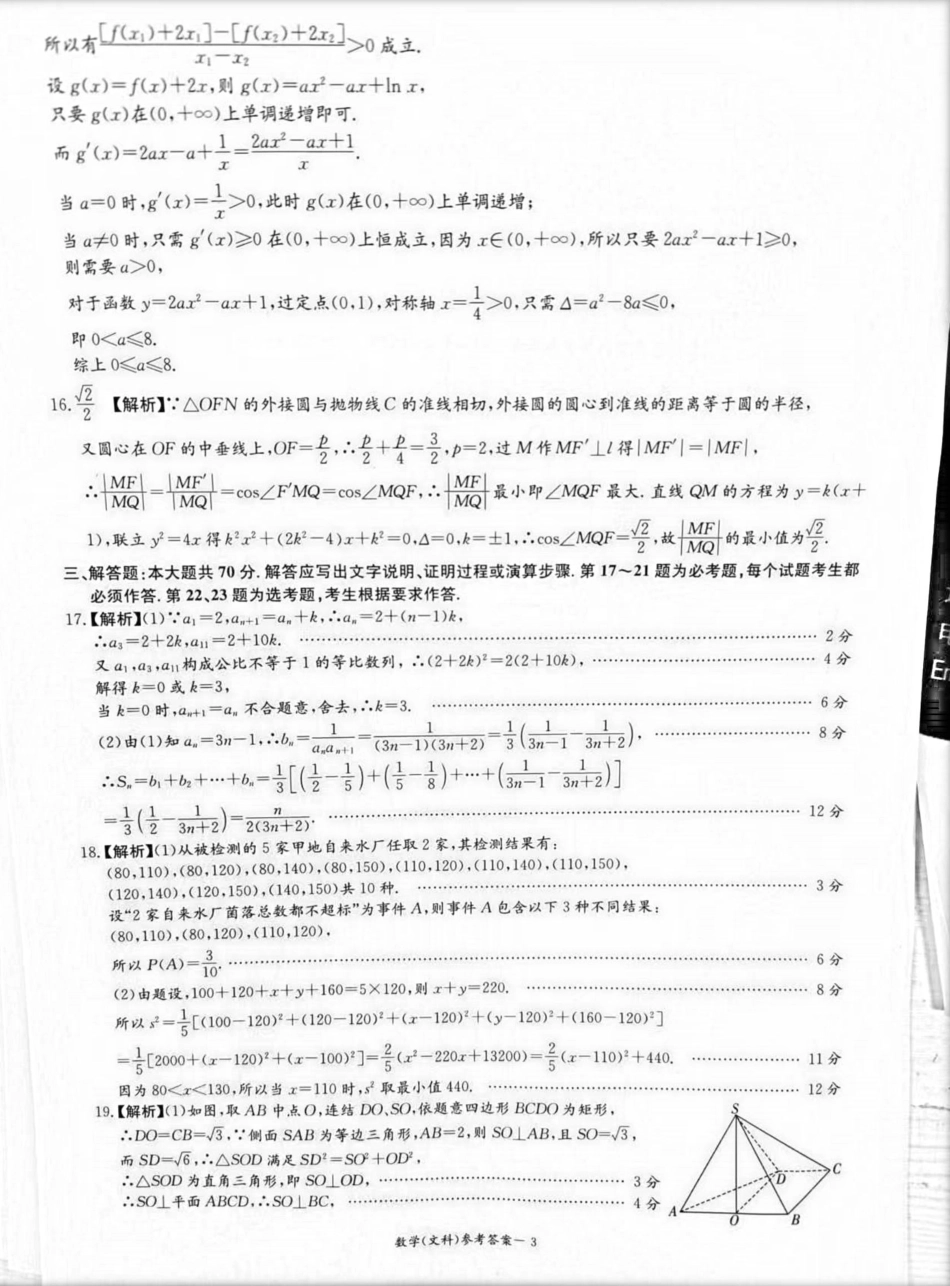 所以有[f(x₁)+2x₁]-[f(x₂)+2x₂]/x₁-x₂>0成立.
设g(x)=f(x)+2x,则g(x)=ax²-ax+ln x,
只要g(x)在(0,+∞)上单调递增即可.
而g′(x)=2ax-a+1/x=2ax²-ax+1/x.
当a=0时,g′(x)=1/x>0,此时g(x)在(0,+∞)上单调递增;
当a≠0时,只需g′(x)≥0在(0,+∞)上恒成立,因为x∈(0,+∞),所以只要2ax²-ax+1≥0,
则需要a>0,
对于函数y=2ax²-ax+1,过定点(0,1),对称轴x=1/4>0,只需Δ=a²-8a≤0,
即0<a≤8.
综上0≤a≤8.
16.√2/2 【解析】∵△OFN的外接圆与抛物线C的准线相切,外接圆的圆心到准线的距离等于圆的半径,
又圆心在OF的中垂线上,OF=p/2,∴p/2+p/4=3/2,p=2,过M作MF′⊥l得|MF′|=|MF|,
∴|MF|/|MQ|=|MF′|/|MQ|=cos∠F′MQ=cos∠MQF,∴|MF|/|MQ|最小即∠MQF最大.直线QM的方程为y=k(x+
1),联立y²=4x得k²x²+(2k²-4)x+k²=0,Δ=0,k=±1,∴cos∠MQF=√2/2,故|MF|/|MQ|的最小值为√2/2.
三、解答题:本大题共70分.解答应写出文字说明、证明过程或演算步骤.第17～21题为必考题,每个试题考生都
必须作答.第22、23题为选考题,考生根据要求作答.
17.【解析】(1)∵a₁=2,aₙ₊₁=aₙ+k,∴aₙ=2+(n-1)k,
∴a₃=2+2k,a₁₁=2+10k. …………2分
又a₁,a₃,a₁₁构成公比不等于1的等比数列,∴(2+2k)²=2(2+10k), …………4分
解得k=0或k=3,
当k=0时,aₙ₊₁=aₙ不合题意,舍去,∴k=3. …………6分
(2)由(1)知aₙ=3n-1,∴bₙ=1/aₙaₙ₊₁=1/(3n-1)(3n+2)=1/3(1/3n-1-1/3n+2), …………8分
∴Sₙ=b₁+b₂+⋯+bₙ=1/3[(1/2-1/5)+(1/5-1/8)+⋯+(1/3n-1-1/3n+2)]
=1/3(1/2-1/3n+2)=n/2(3n+2). …………12分
18.【解析】(1)从被检测的5家甲地自来水厂任取2家,其检测结果有:
(80,110),(80,120),(80,140),(80,150),(110,120),(110,140),(110,150),
(120,140),(120,150),(140,150)共10种. …………3分
设“2家自来水厂菌落总数都不超标”为事件A,则事件A包含以下3种不同结果:
(80,110),(80,120),(110,120),
所以P(A)=3/10. …………6分
(2)由题设,100+120+x+y+160=5×120,则x+y=220. …………8分
所以s²=1/5[(100-120)²+(120-120)²+(x-120)²+(y-120)²+(160-120)²]
=1/5[2000+(x-120)²+(x-100)²]=2/5(x²-220x+13200)=2/5(x-110)²+440. …………11分
因为80<x<130,所以当x=110时,s²取最小值440. …………12分
19.【解析】(1)如图,取AB中点O,连结DO、SO,依题意四边形BCDO为矩形,
∴DO=CB=√3,∵侧面SAB为等边三角形,AB=2,则SO⊥AB,且SO=√3,
而SD=√6,∴△SOD满足SD²=SO²+OD²,
∴△SOD为直角三角形,即SO⊥OD, …………3分
∴SO⊥平面ABCD,∴SO⊥BC, …………4分
S
C
D
A
O
B
数学(文科)参考答案－3